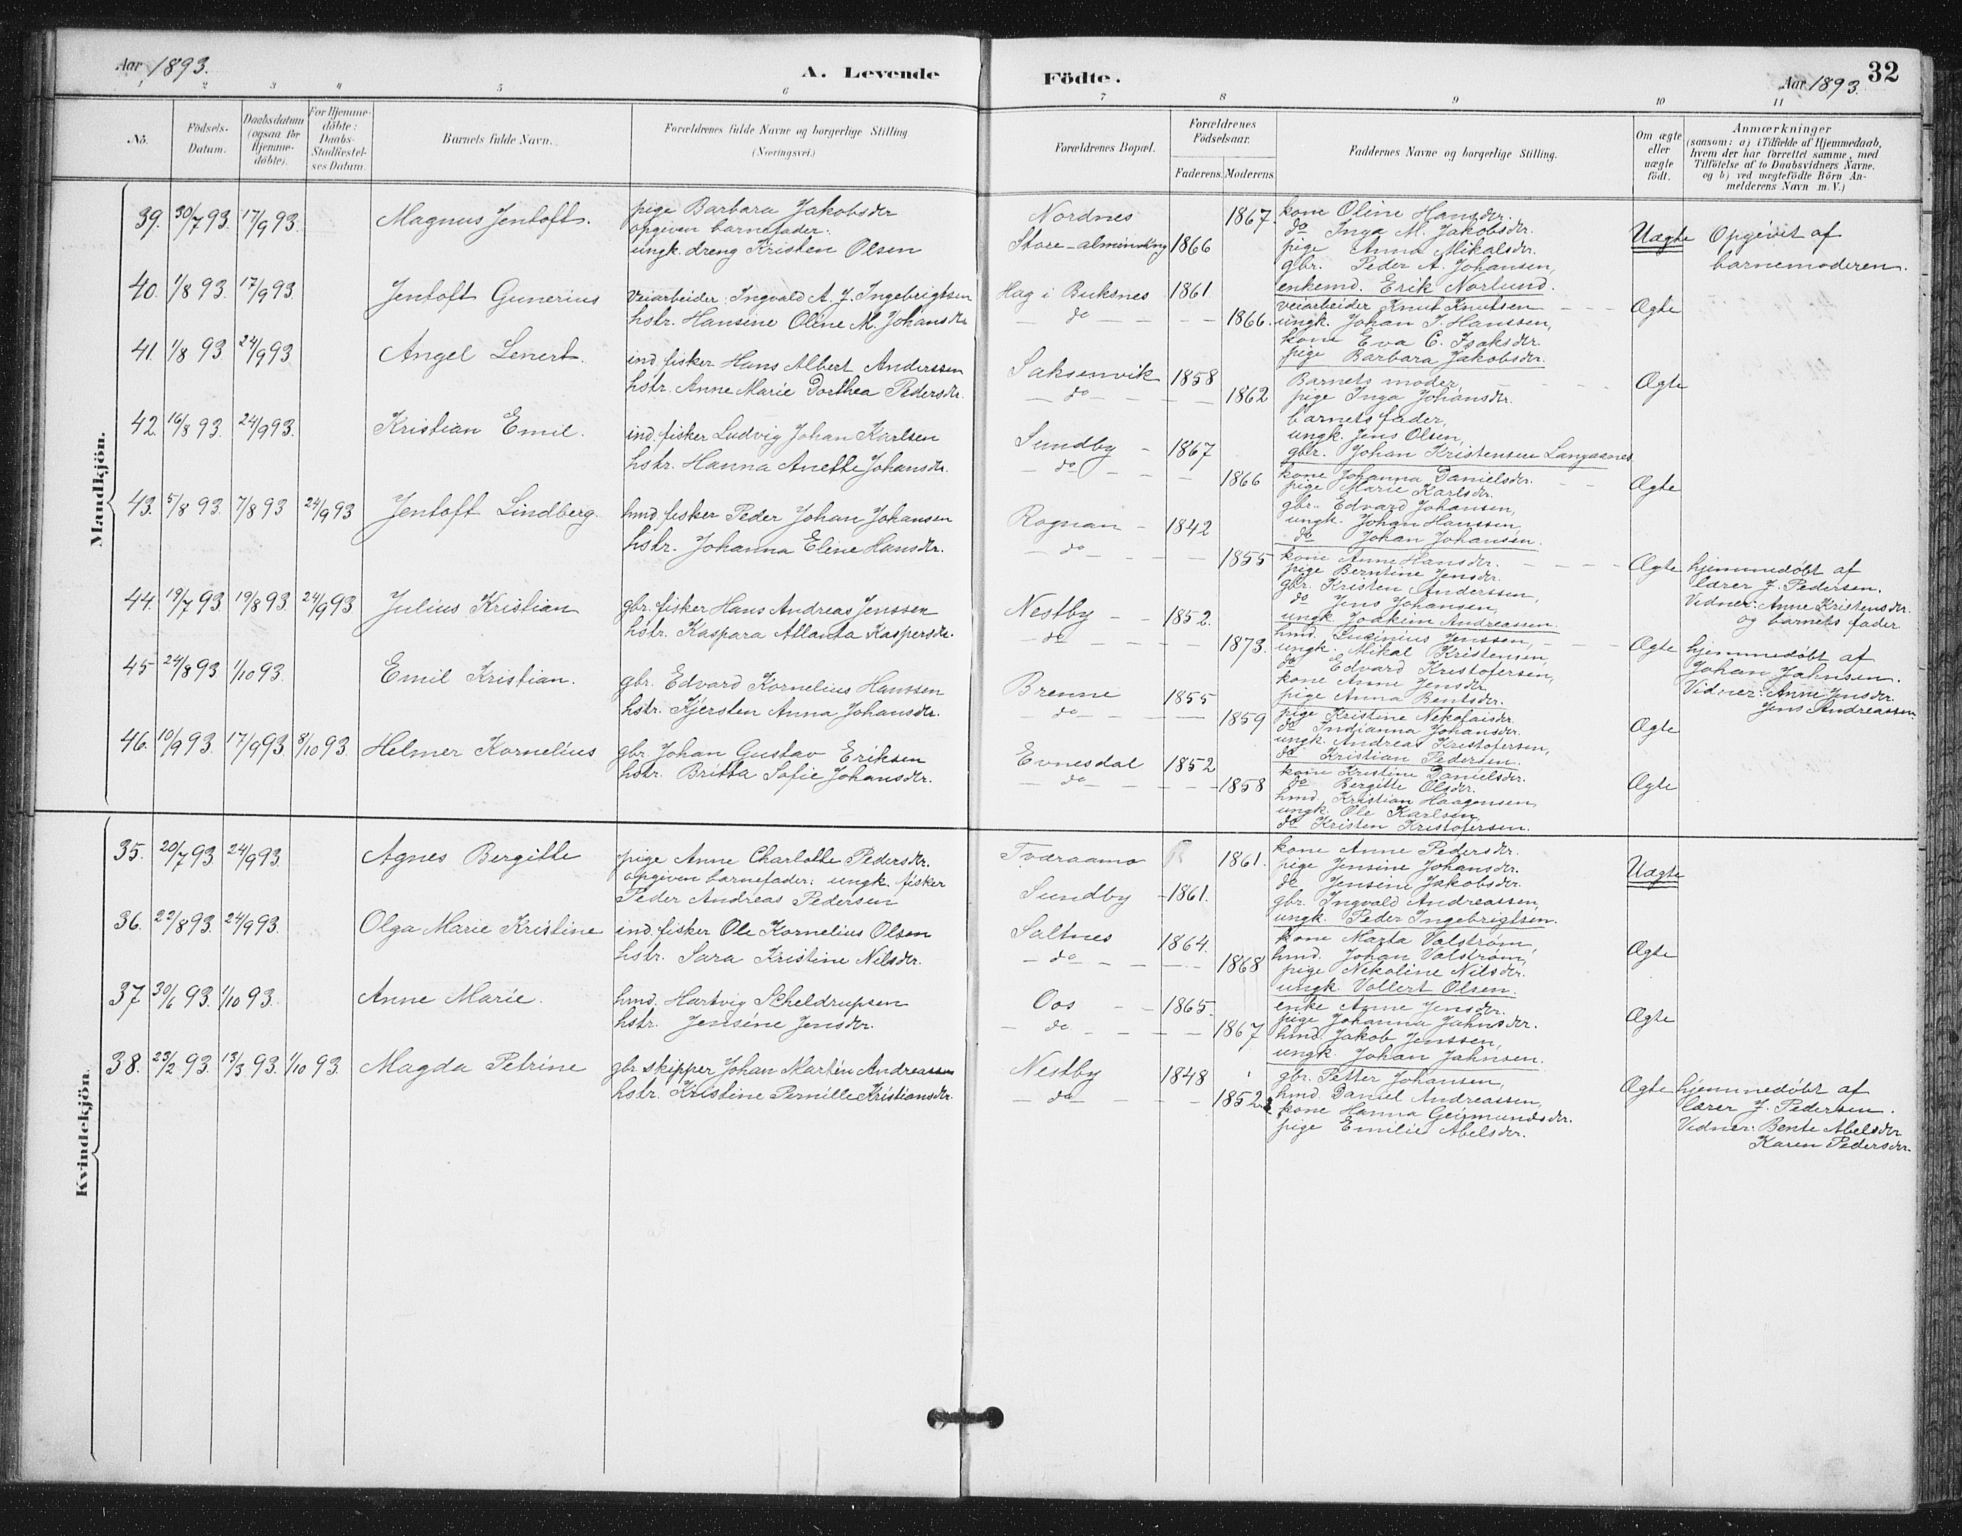 Aar 1893.
A. Levende Födte.
Aar 1893.
32
1 2 3 4 5 6 7 8 9 10 11
No.
Födsels-Datum.
Daabsdatum (ogsaa for Hjemme-döbte).
For Hjemme-döbte: Daabs-Stadfæstel-ses Datum.
Barnets fulde Navn.
Forældrenes fulde Navne og borgerlige Stilling (Næringsvei.)
Forældrenes Bopæl.
Forældrenes Födselsaar.
Faderens. Moderens.
Faddernes Navne og borgerlige Stilling.
Om ægte eller uægte födt.
Anmærkninger
(saasom: a) i Tilfælde af Hjemmedaab, hvem der har forrettet samme, med Tilföielse af to Daabsvidners Navne, og b) ved uægtefödte Börn An-melderens Navn m. V.)
Mandkjön.
39. 30/7 93. 17/9 93. Magnus Jentoft.
pige Barbara Jakobsdr
opgiven barnefader:
ungk. dreng Kristen Olsen
Nordnes 1867.
Store-alminding 1866
kone Oline Hansdr.
do Inga M. Jakobsdr.
pige Anna Mikalsdr.
gbr. Peder A. Johansen,
enkemd. Erik Norlund.
Uægte
Opgivet af
barnemoderen.
40. 1/8 93. 17/9 93. Jentoft Gunerius
Veiarbeider Ingvald A. J. Ingebrigtsen
hstr. Hansine Oline M. Johansdr
Hag i Buksnes 1861.
do 1866.
veiarbeider Knut Knutsen
ungk. Johan J. Hanssen,
kone Eva C. Isaksdr.
pige Barbara Jakobsdr.
Ægte
41. 1/8 93 24/9 93 Angel Lenert.
ind. fisker Hans Albert Anderssen
hstr. Anne Marie Dorthea Pedersdr.
Saksenvik 1858
do 1862
Barnets moder,
pige Inga Johansdr.
barnets fader,
ungk. Jens Olsen,
gbr. Johan Kristensen Langaasnes
Ægte
42. 16/8 93. 24/9 93. Kristian Emil.
ind. fisker Ludvig Johan Karlsen
hstr. Hanna Anette Johansdr.
Sundby 1867
do 1866
kone Johanna Danielsdr.
pige Marie Karlsdr.
gbr. Edvard Johansen,
ungk. Johan Hanssen,
do Johan Johansen.
Ægte
43. 5/8 93. 7/8 93 24/9 93 Jentoft Lindberg.
hmd. fisker Peder Johan Johansen
hstr. Johanna Eline Hansdr.
Rognan 1842
do 1855
kone Anne Hansdr.
pige Berntine Jensdr.
gbr. Kristen Anderssen,
do Jens Johansen,
ungk. Joakim Andreassen.
Ægte
hjemmedøbt af
lærer J. Pedersen.
Vidner: Anne Kristensdr.
og barnets fader
44. 19/7 93. 19/8 93. 24/9 93 Julius Kristian
gbr. fisker Hans Andreas Jenssen
hstr. Kaspara Atlanta Kaspersdr.
Nestby 1852.
do 1873.
hmd. Lucinius Jenssen,
ungk. Mikal Kristensen,
do Edvard Kristofersen,
kone Anne Jensdr.
pige Anna Bentsdr.
Ægte
hjemmedøbt af
Johan Jahnsen.
Vidner: Anne Jensdr.
Jens Andreassen
45 24/8 93 1/10 93. Emil Kristian.
gbr. Edvard Kornelius Hanssen
hstr. Kjersten Anna Johansdr.
Brenne 1855
do 1859
pige Kristine Nekolaisdr.
do Indianna Johansdr.
ungk. Andreas Kristofersen,
do Kristian Pedersen.
Ægte
46. 10/9 93. 17/9 93 8/10 93. Helmer Kornelius
gbr. Johan Gustav Eriksen
hstr. Britta Sofie Johansdr.
Evnesdal 1852
do 1858
kone Kristine Danielsdr.
do Bergitte Olsdr.
hmd. Kristian Haagensen,
ungk. Ole Karlsen,
do Kristen Kristofersen.
Ægte
Kvindekjön.
35. 20/7 93 24/9 93. Agnes Bergitte
pige Anne Charlotte Pedersdr.
opgiven barnefader: ungk. fisker
Peder Andreas Pedersen
Tværaamo 1861.
Sundby 1861.
kone Anne Pedersdr.
pige Jensine Johansdr.
do Jensine Jakobsdr.
gbr. Ingvald Andreassen,
ungk. Peder Ingebrigtsen.
Uægte
36. 22/8 93. 24/9 93. Olga Marie Kristine
ind. fisker Ole Kornelius Olsen
hstr. Sara Kristine Nilsdr.
Saltnes 1864.
do 1868
kone Marta Valstrøm,
hmd. Johan Valstrøm,
pige Nekoline Nilsdr.
ungk. Vollert Olsen.
Ægte
37 30/6 93. 1/10 93. Anne Marie.
hmd. Hartvig Scheldrupsen
hstr. Jensine Jensdr.
Oos 1865.
do 1867
enke Anne Jensdr.
pige Johanna Jahnsdr.
hmd. Jakob Jenssen,
ungk. Johan Jahnsen.
Ægte
38. 23/2 93. 13/3 93. 1/10 93. Magda Petrine
gbr. skipper Johan Martin Andreassen
hstr. Kristine Pernille Kristiansdr.
Nestby 1848
do 1852
gbr. Petter Johansen,
hmd. Daniel Andreassen,
kone Hanna Geirmundsdr.
pige Emilie Abelsdr.
Ægte
hjemmedøbt af
lærer J. Pedersen.
Vidner: Bente Abelsdr
Karen Pedersdr.